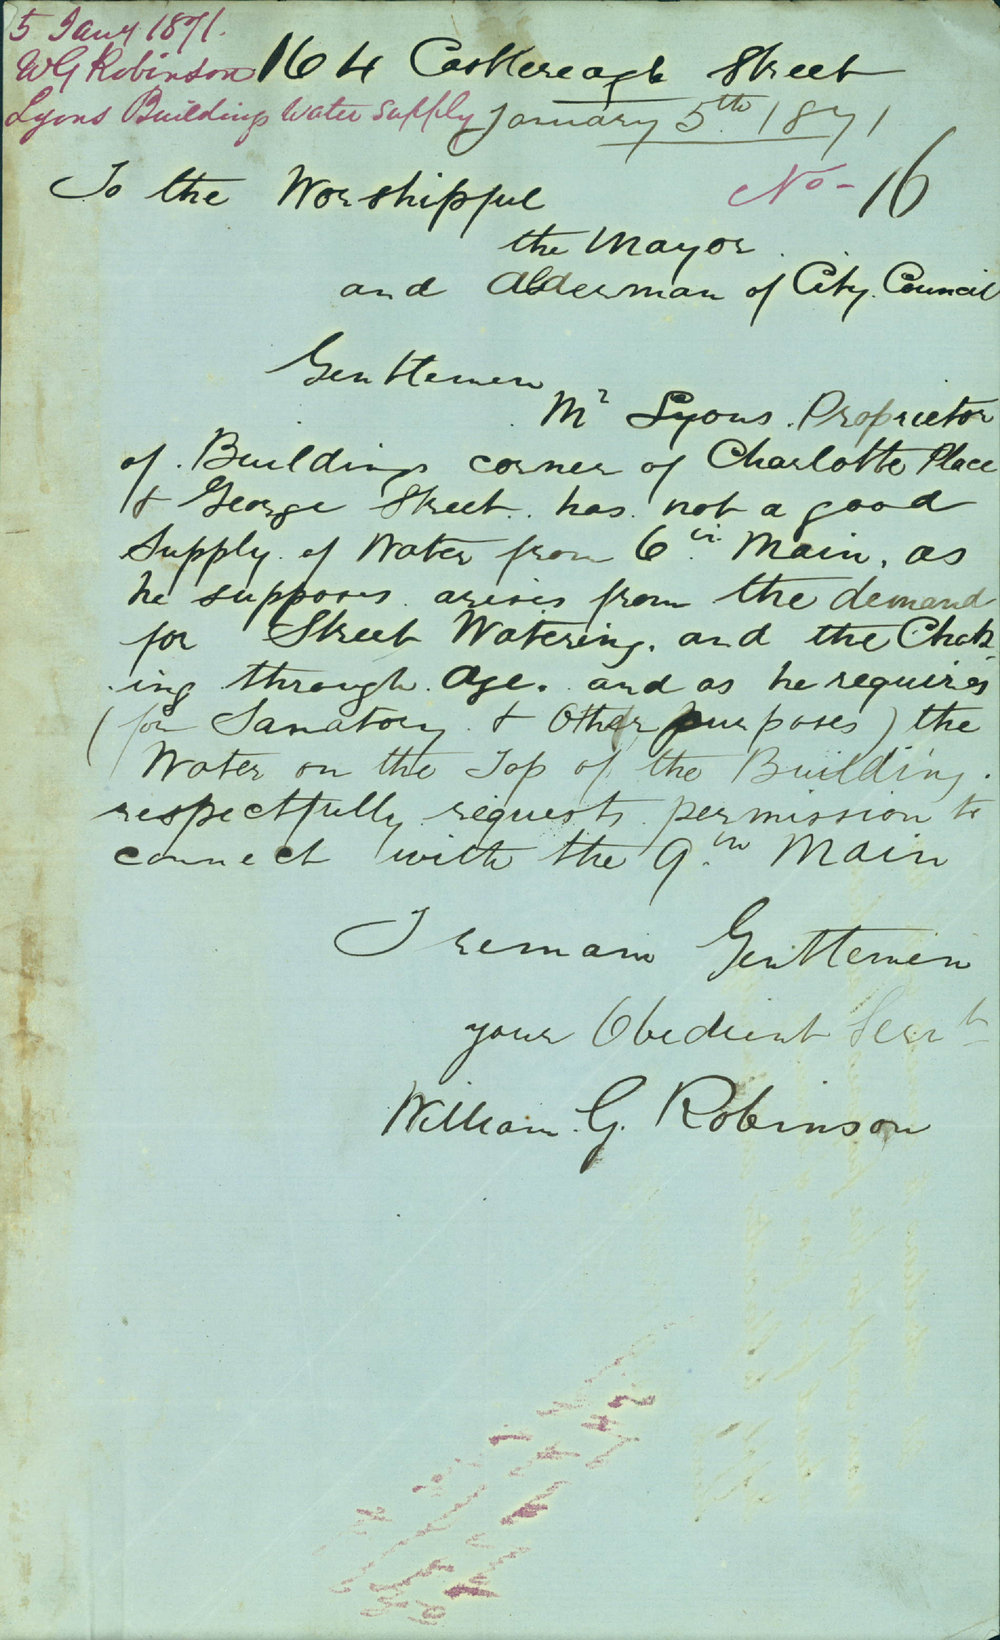 5 Jany 1871.
W G Robinson
Lyons Buildings Water Supply
164 Castlereagh Street
January 5th 1871
No- 16
To the Worshipful
the Mayor
and Alderman of City Council
Gentlemen
Mr Lyons Proprietor
of Buildings corner of Charlotte Place
& George Street has not a good
Supply of Water from 6 in Main, as
he supposes arises from the demand
for Street Watering, and the Chok
ing through age. and as he requires
(for Sanatory & Other purposes) the
Water on the Top of the Building.
respectfully requests permission to
connect with the 9 in Main
I remain Gentlemen
your Obedient Servt
William G. Robinson